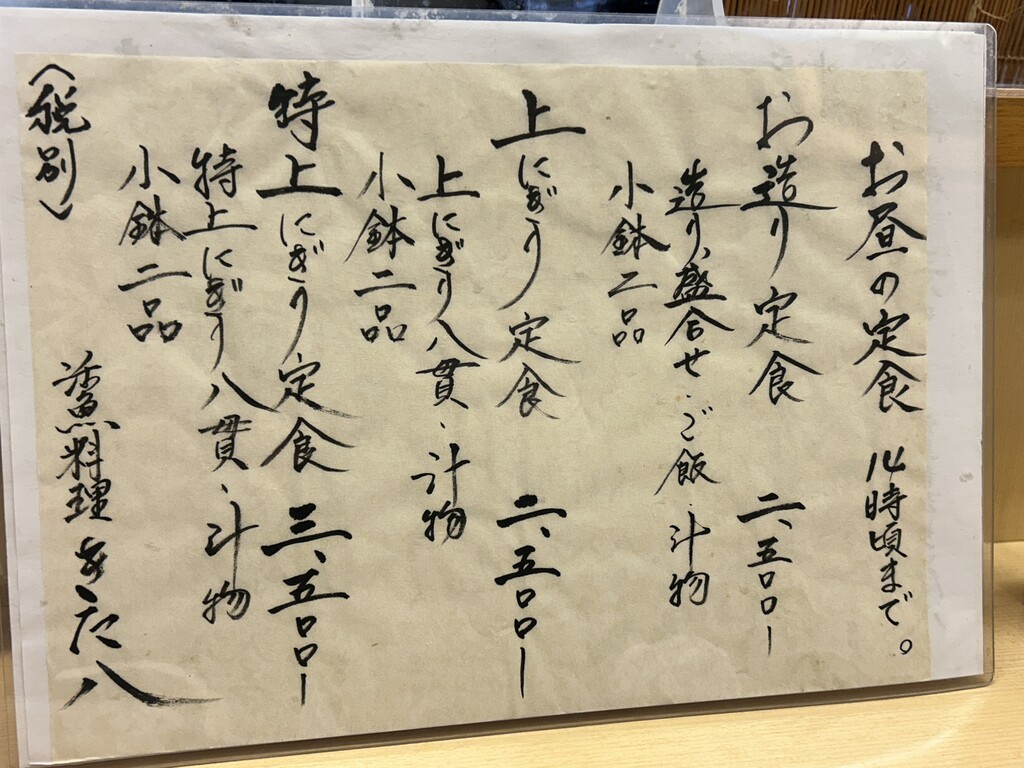 お昼の定食 14時頃まで。
お造り定食 二、五〇〇ー
造り盛合せ・ご飯・汁物
小鉢二品
上にぎり定食 二、五〇〇ー
上にぎり八貫・汁物
小鉢二品
特上にぎり定食 三、五〇〇ー
特上にぎり八貫・汁物
小鉢二品
(税別)
活魚料理 きた八